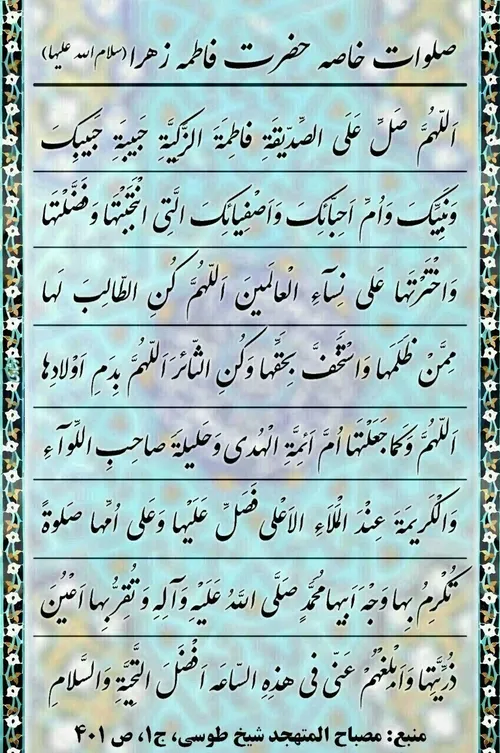 صلوات خاصه حضرت فاطمه زهرا (سلام الله علیها)
اَللّهُمَّ صَلِّ عَلَی الصِّدّیقَةِ فاطِمَةَ الزَّکِیَّةِ حَبیبَةِ حَبیبِکَ
وَنَبِیِّکَ وَاُمِّ اَحِبّائِکَ وَاَصْفِیائِکَ الَّتِی انْتَجَبْتَها وَفَضَّلْتَها
وَاخْتَرْتَها عَلی نِسآءِ الْعالَمینَ اَللّهُمَّ کُنِ الطّالِبَ لَها
مِمَّنْ ظَلَمَها وَاسْتَخَفَّ بِحَقِّها وَکُنِ الثّائِرَ اَللّهُمَّ بِدَمِ اَوْلادِها
اَللّهُمَّ وَکَما جَعَلْتَها اُمَّ اَئِمَّةِ الْهُدی وَحَلیلَةَ صاحِبِ اللِّوآءِ
وَالْکَریمَةَ عِنْدَ الْمَلَاءِ الاَعْلی فَصَلِّ عَلَیْها وَعَلی اُمِّها صَلوةً
تُکْرِمُ بِها وَجْهَ اَبیها مُحَمَّدٍ صَلَّی اللهُ عَلَیْهِ وَآلِهِ وَتُقِرُّ بِها اَعْیُنَ
ذُرِّیَّتِها وَاَبْلِغْهُمْ عَنّی فی هذِهِ السّاعَه اَفْضَلَ التَّحِیَّةِ وَالسَّلامِ
منبع: مصباح المتهجد شیخ طوسی، ج۱، ص ۴۰۱